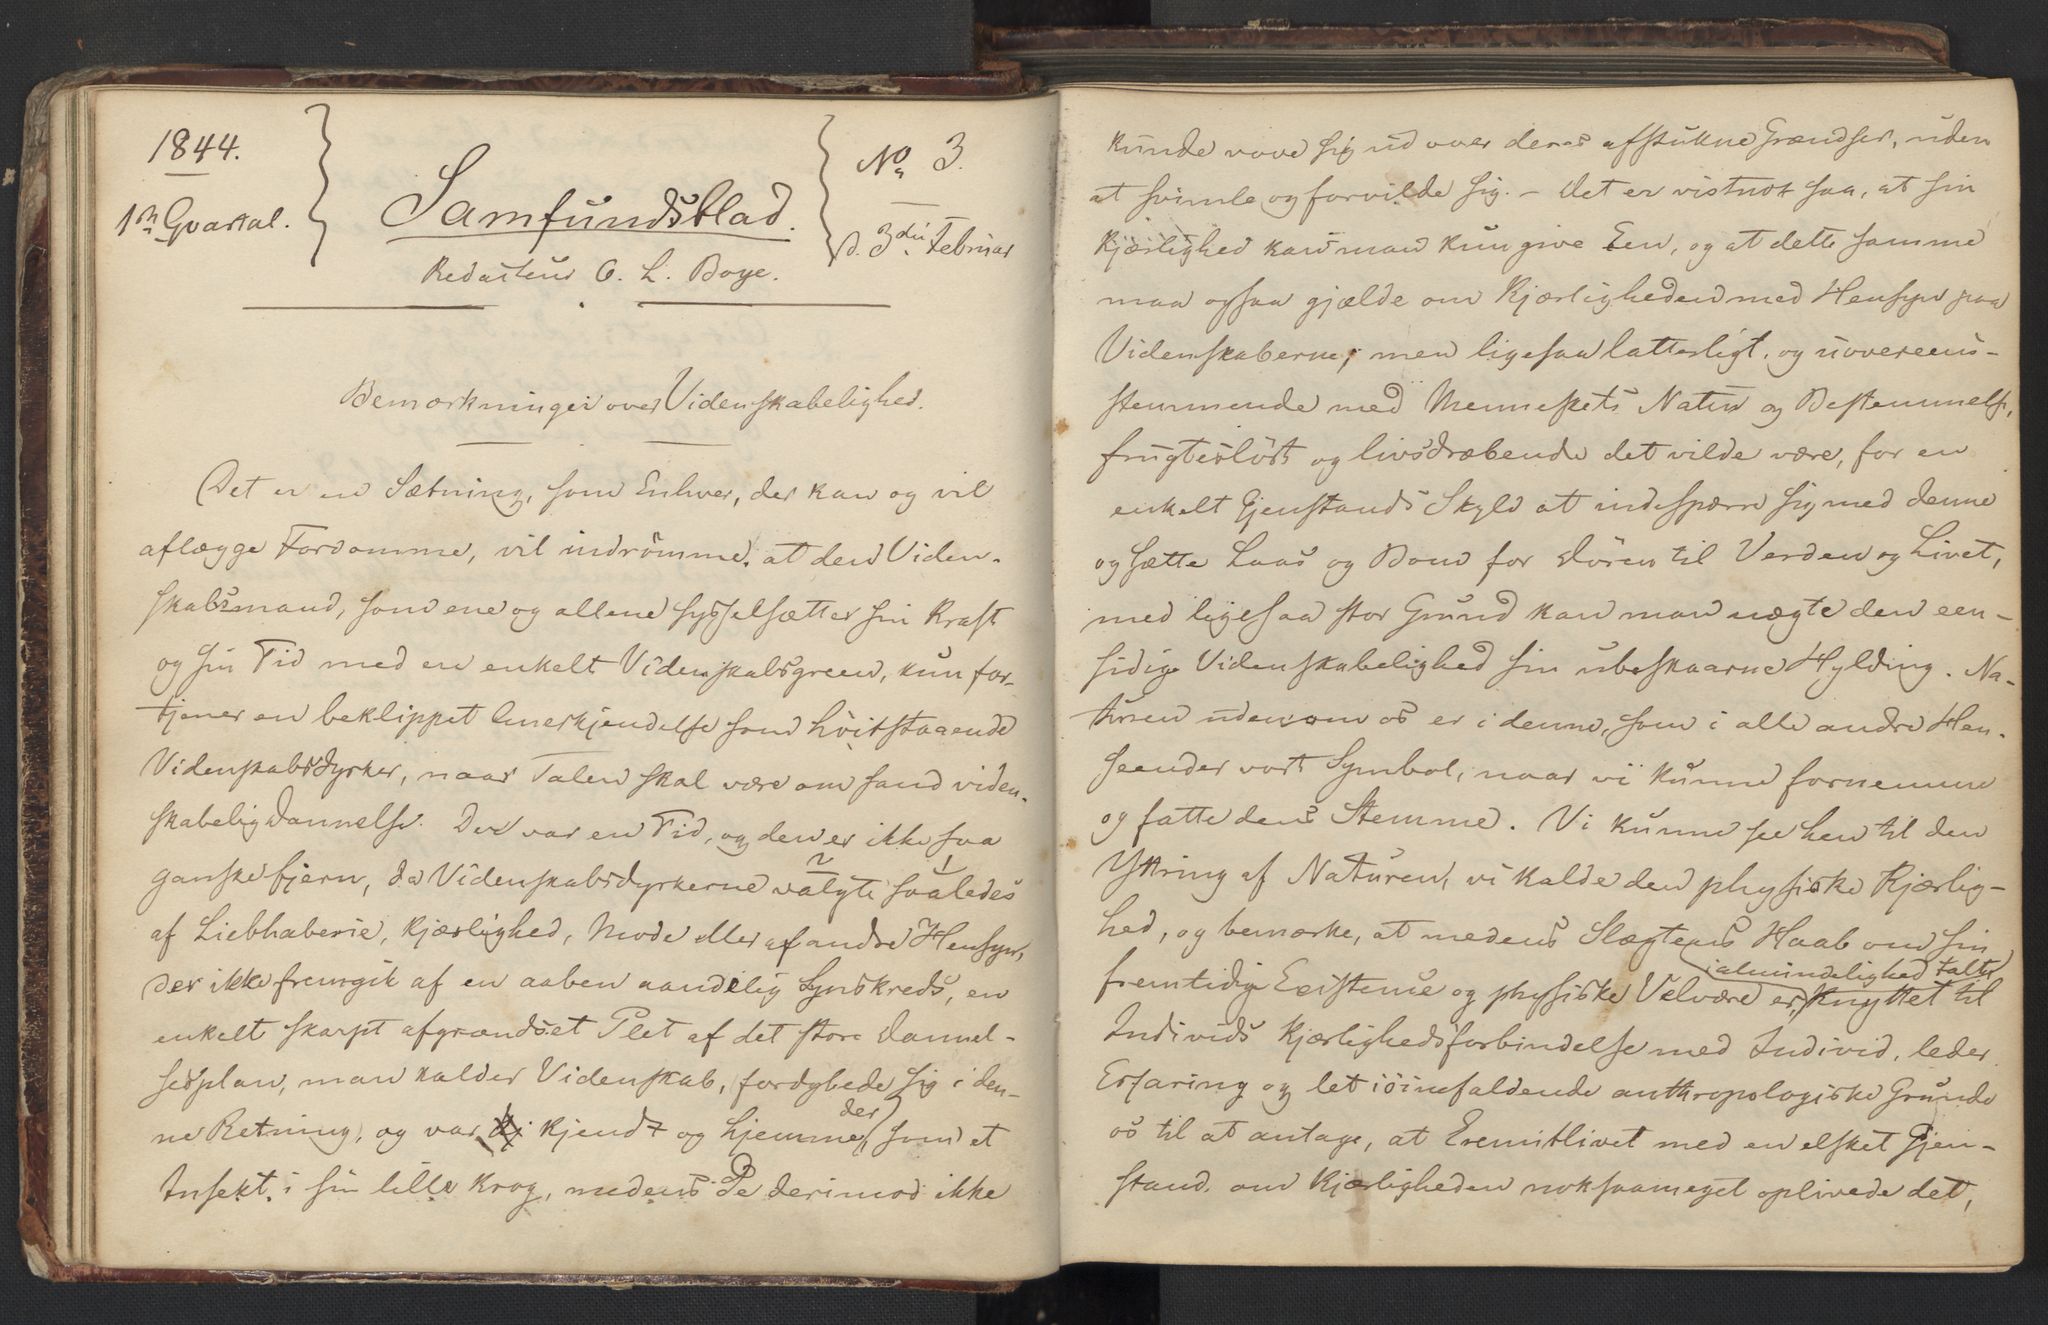 1844.
1ste Qvartal.
Samfundsblad.
Redacteur C. L. Boye.
No 3.
d. 3die Februar
Bemærkninger over Videnskabelighed.
Det er en Sætning, som Enhver, der kan og vil
aflægge Fordomme, vil indrømme, at den Viden-
skabsmand, som ene og allene sysselsætter sin Kraft
og sin Tid med en enkelt Videnskabsgreen, kun for-
tjener en beklippet Anerkjendelse som høitstaaende
Videnskabsdyrker, naar Talen skal være om sand viden-
skabelig Dannelse. Der var en Tid, og den er ikke saa
ganske fjern, da Videnskabsdyrkerne valgte saaledes
af Liebhaberie, Kjærlighed, Mode eller af andre Hensyn,
der ikke fremgik af en aaben aandelig Synskreds, en
enkelt skarpt afgrændset Plet af det store Dannel-
sesplan, man kalder Videnskab, fordybede sig i den-
ne Retning, og var kjendt og hjemme der, som et
Insekt i sin lille Krog, medens De derimod ikke
kunde vove sig ud over deres afstukne Grændser, uden
at svimle og forvilde sig. – Det er vistnok saa, at sin
Kjærlighed kan man kun give Een, og at dette samme
maa ogsaa gjælde om Kjærligheden med Hensyn paa
Videnskaberne; men ligesaa latterligt, og uovereens-
stemmende med Menneskets Natur og Bestemmelse,
frugtesløst og livsdræbende det vilde være, for en
enkelt Gjenstands Skyld at indespærre sig med denne
og sætte Laas og Bom for Døren til Verden og Livet,
med ligesaa stor Grund kan man nægte den een-
sidige Videnskabelighed sin ubeskaarne Hylding. Na-
turen udenom os er i denne, som i alle andre Hen-
seender vort Symbol, naar vi kunne fornemme
og fatte dens Stemme. Vi kunne see hen til den
Yttring af Naturen, vi kalde den physiske Kjærlig-
hed, og bemærke, at medens Slægtens Haab om sin
fremtidige Existense og physiske Velvære er, i almindelighed talt, knyttet til
Individs Kjærlighedsforbindelse med Individ, leder
Erfaring og let iøinefaldende anthropologiske Grunde
os til at antage, at Eremitlivet med en elsket Gjen-
stand, om Kjærligheden noksaameget oplivede det,